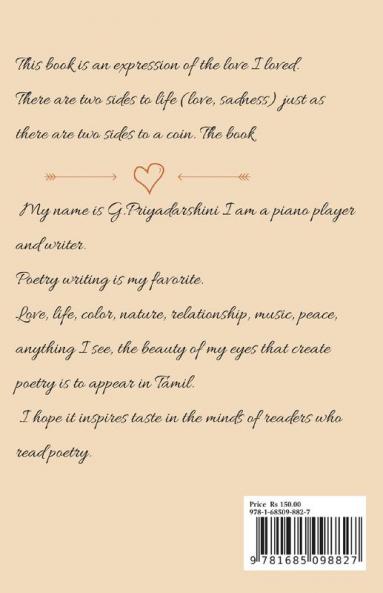 This book is an expression of the love I loved.
There are two sides to life (love, sadness) just as
there are two sides to a coin. The book
My name is G.Priyadarshini I am a piano player
and writer.
Poetry writing is my favorite.
Love, life, color, nature, relationship, music, peace,
anything I see, the beauty of my eyes that create
poetry is to appear in Tamil.
I hope it inspires taste in the minds of readers who
read poetry.
Price Rs 150.00
978-1-68509-882-7
9 781685 098827